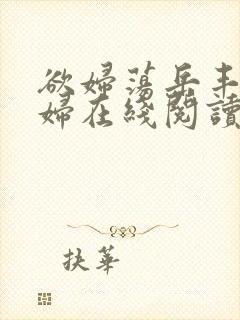 欲婦蕩岳丰
婦在綫閱讀
扶華